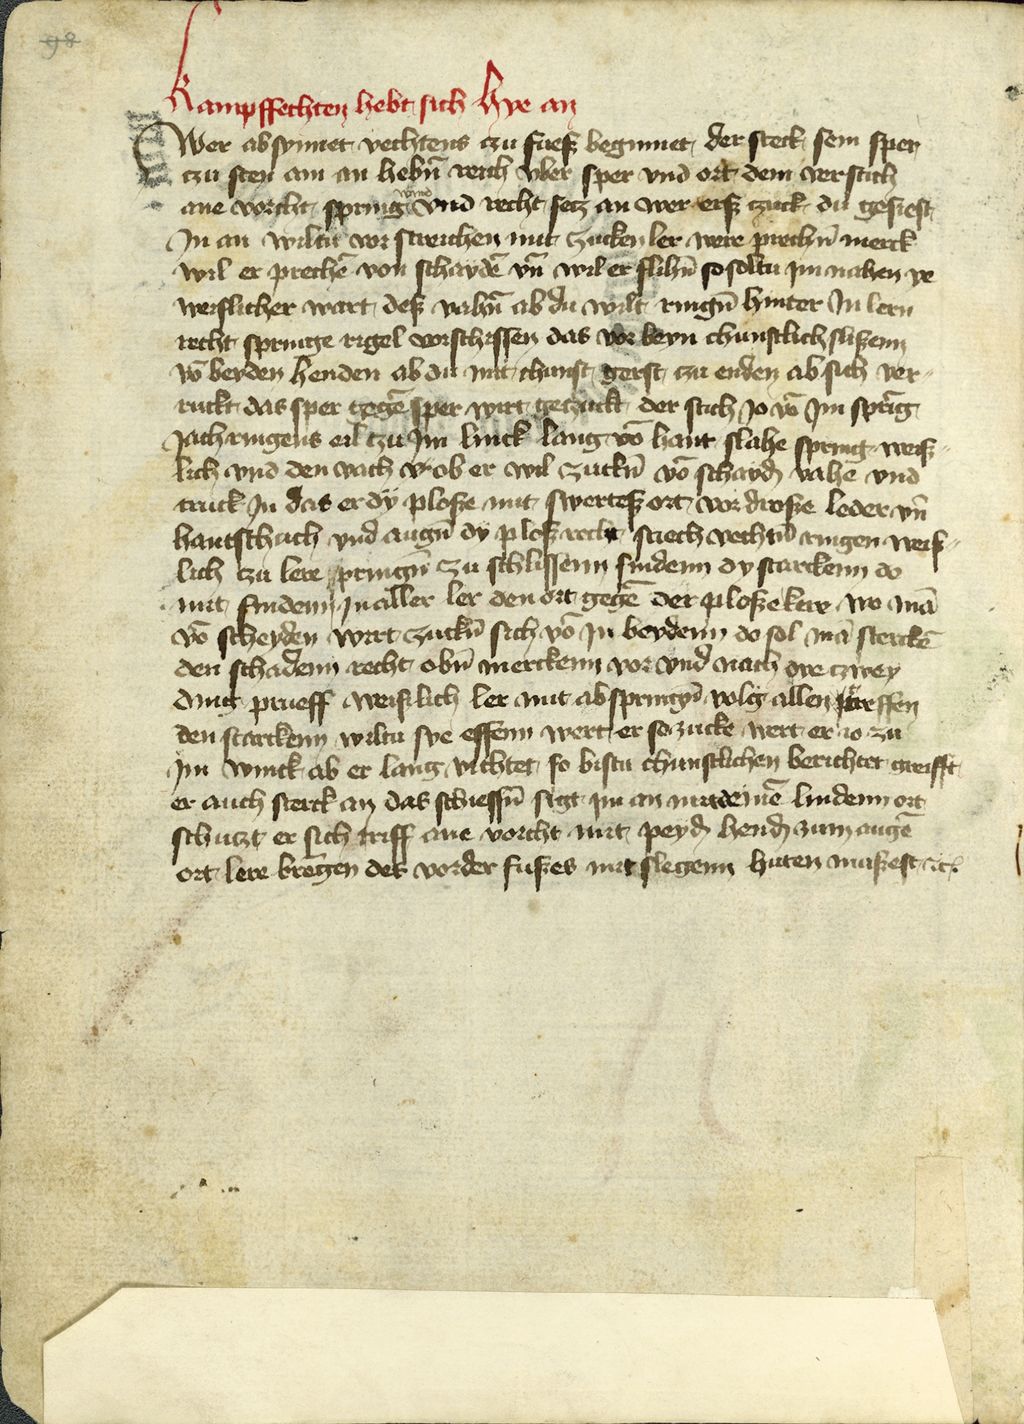 98
Kampffechten hebt sich hye an
Wer absynnet vechtens czu fuesß begynnet der steck sein sper
czu sten am an hebñ rech vber sper vnd ort dem verstich
ane vorcht spring wind vnd recht secz an wer erß czuck du gesiest
In an wiltu vor streichen mit zucken ler were prechñ merck
wil er prechē von schaydē vñ wil er flihñ so soltu im nahen ye
weislicher wart deß vahñ ab du wilt ringñ hinter In lern
recht springe rigel vorschissen das vor beyn chunstlich slißenn
vō beyden henden ab du mit chunst gerst zu enden ab sich ver-
ruckt das sper gegē sper wirt geczuckt der stich Jo vō Im sprīg
Jach ringens eil czu Im linck lang vō hant slahe spring weiß-
lich vnd den vach vr ob er wil zuckñ vō schayd vahē vnd
truck In das er dy ploße mit swerteß ort vordroße leder vñ
hantschuch vnd augñ dy ploß recht suech vechtñ ringen weiß-
lich czu lere springñ zu schlissenn findenn dy starckenn do
mit findenn In aller ler den ort gegē der ploße kere wo mā
vō scheyden wirt zuckñ sich vō In beydenn do sol mā sterckē
den schadenn recht obñ merckenn vor vnd nach dye czwey
dink prueff weislich ler mit abspringñ volg allen treffen
den starckenn wiltu sye effenn wert er so zucke wert er io zu
Im winck ab er lang vichtet so bistu chunstlichen berichtet greifft
er auch sterck an das schiessñ sigt im an mit deinē lindenn ort
schuczt er sich triff ane vorcht mit peyd hend zum augē
ort lere brengen des vorder fußes mit slegenn huten mußest etc.